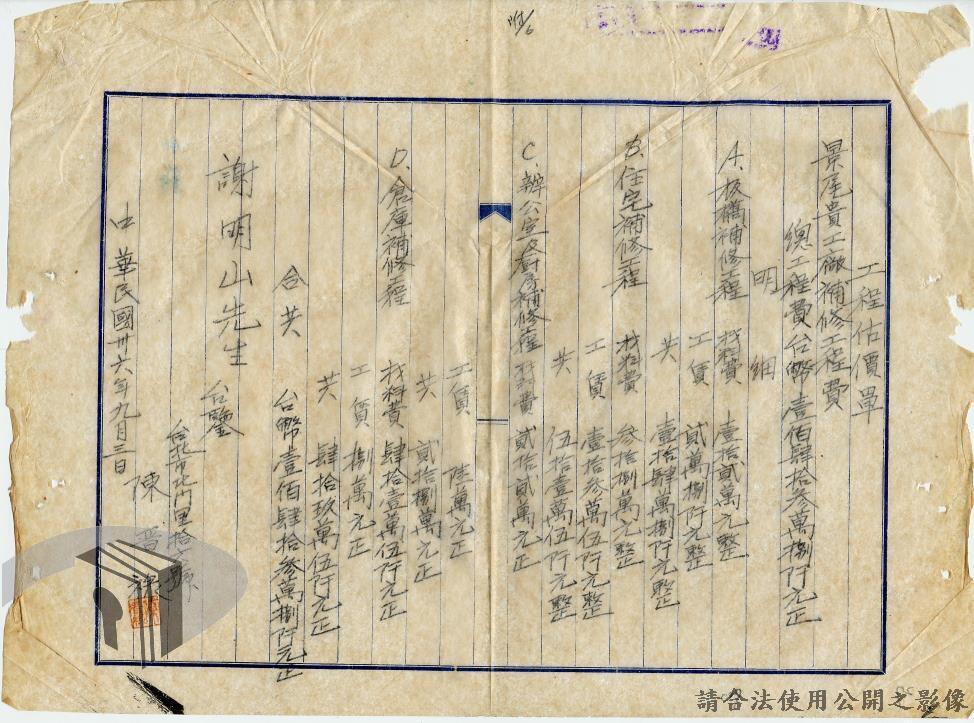 附6
工程估價單
景尾貴工廠補修工程費
總工程費台幣壹佰肆拾叁萬捌仟元正
明細
A.板橋補修工程 材料費 壹拾貳萬元整
工賃 貳萬捌仟元整
共 壹拾肆萬捌仟元整
B.住宅補修工程 材料費 叁拾捌萬元整
工賃 壹拾叁萬伍仟元整
共 伍拾壹萬伍仟元整
C.辦公室及廚房補修工程 材料費 貳拾貳萬元正
工賃 陸萬元正
共 貳拾捌萬元正
D.倉庫補修工程 材料費 肆拾壹萬伍仟元正
工賃 捌萬元正
共 肆拾玖萬伍仟元正
合共 台幣壹佰肆拾叁萬捌仟元正
謝明山先生 台鑒
台北市北門里拾
陳
中華民國卅六年九月三日
請合法使用公開之影像